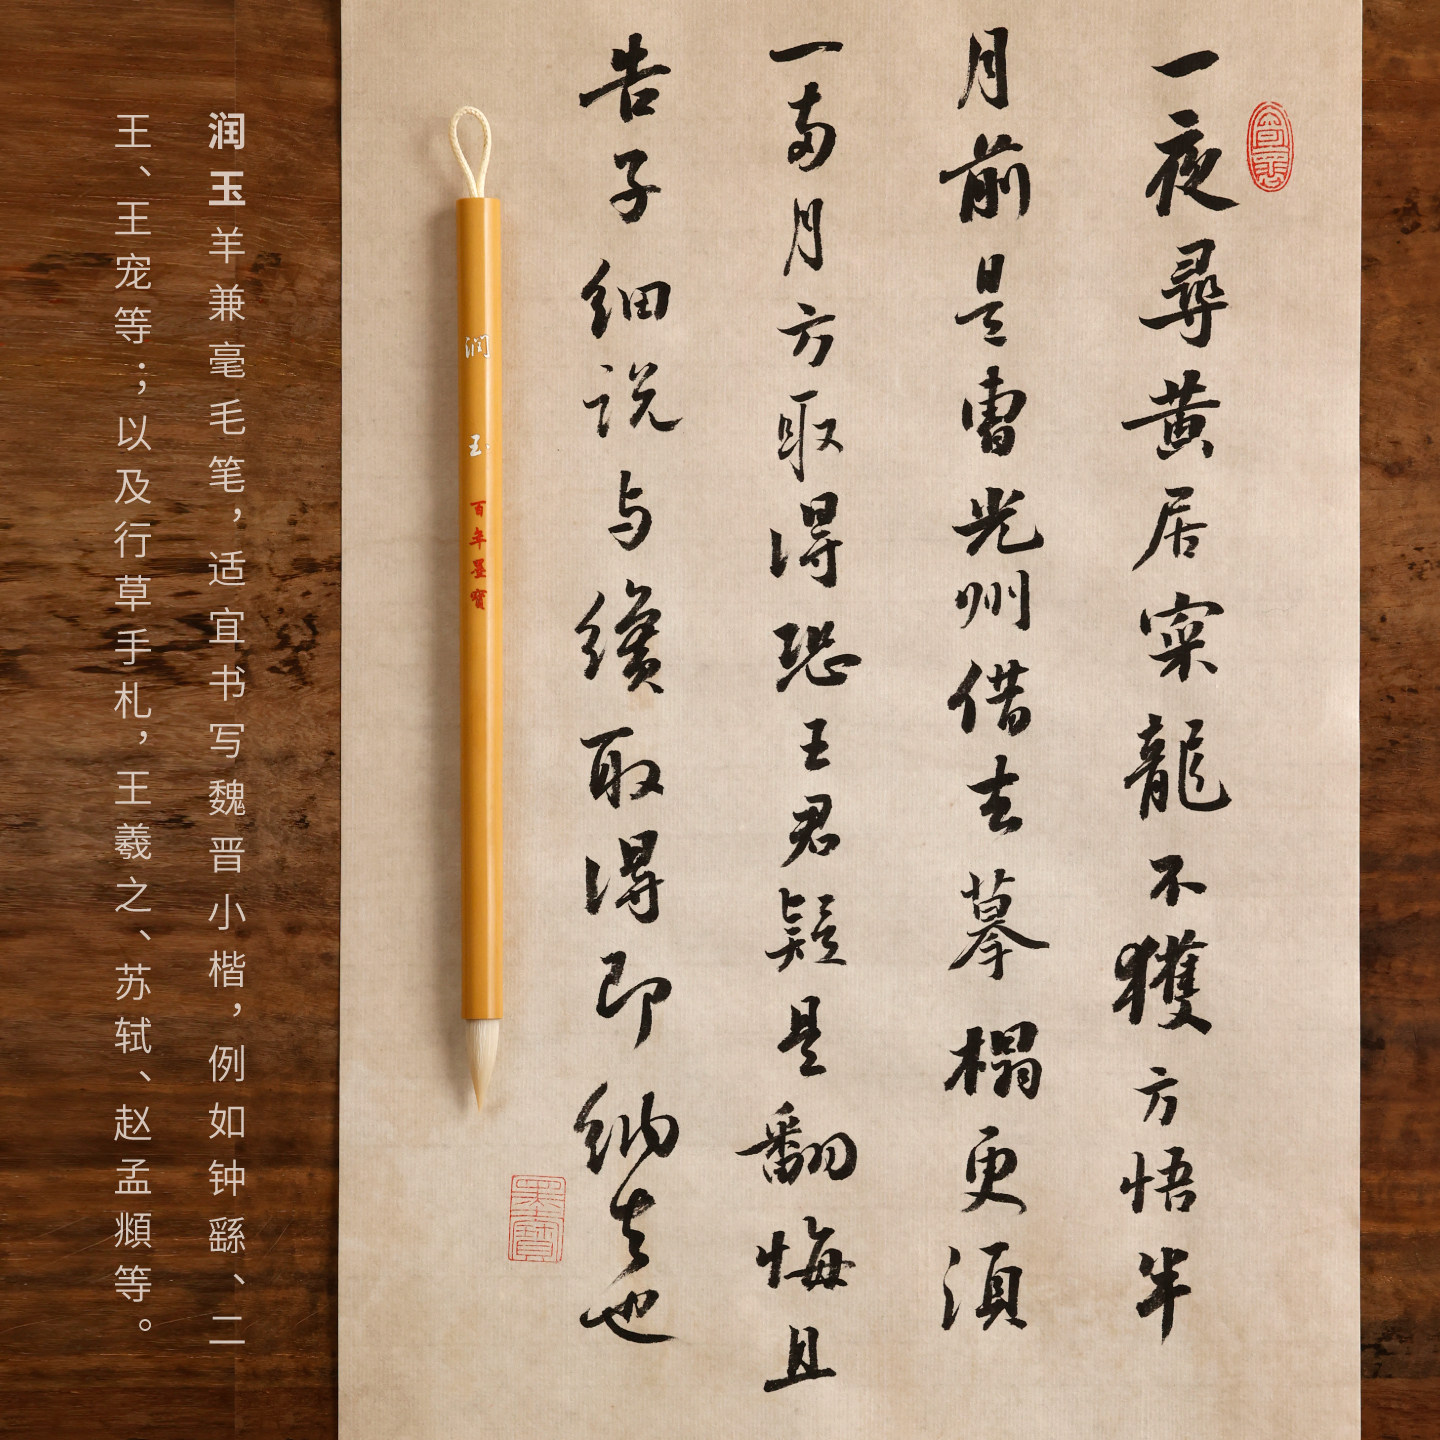 一夜尋黄居寀龍不獲方悟半
月前是曹光州借去摹榻更須
一両月方取得恐王君疑是翻悔且
告子细说与纔取得即納去也
润玉
百年墨寶
墨寶
润玉羊兼毫毛笔，适宜书写魏晋小楷，例如钟繇、二
王、王宠等；以及行草手札，王羲之、苏轼、赵孟頫等。